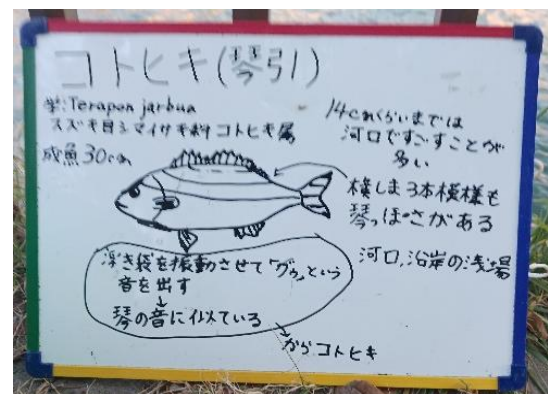 コトヒキ(琴引)
学:Terapon jarbua
スズキ目シマイサキ科コトヒキ属
成魚30cm
14cmくらいまでは
河口ですごすことが
多い
横しま3本模様も
琴っぽさがある
河口、沿岸の浅場
浮き袋を振動させて「グゥ」という
音を出す
↓
琴の音に似ている
→からコトヒキ